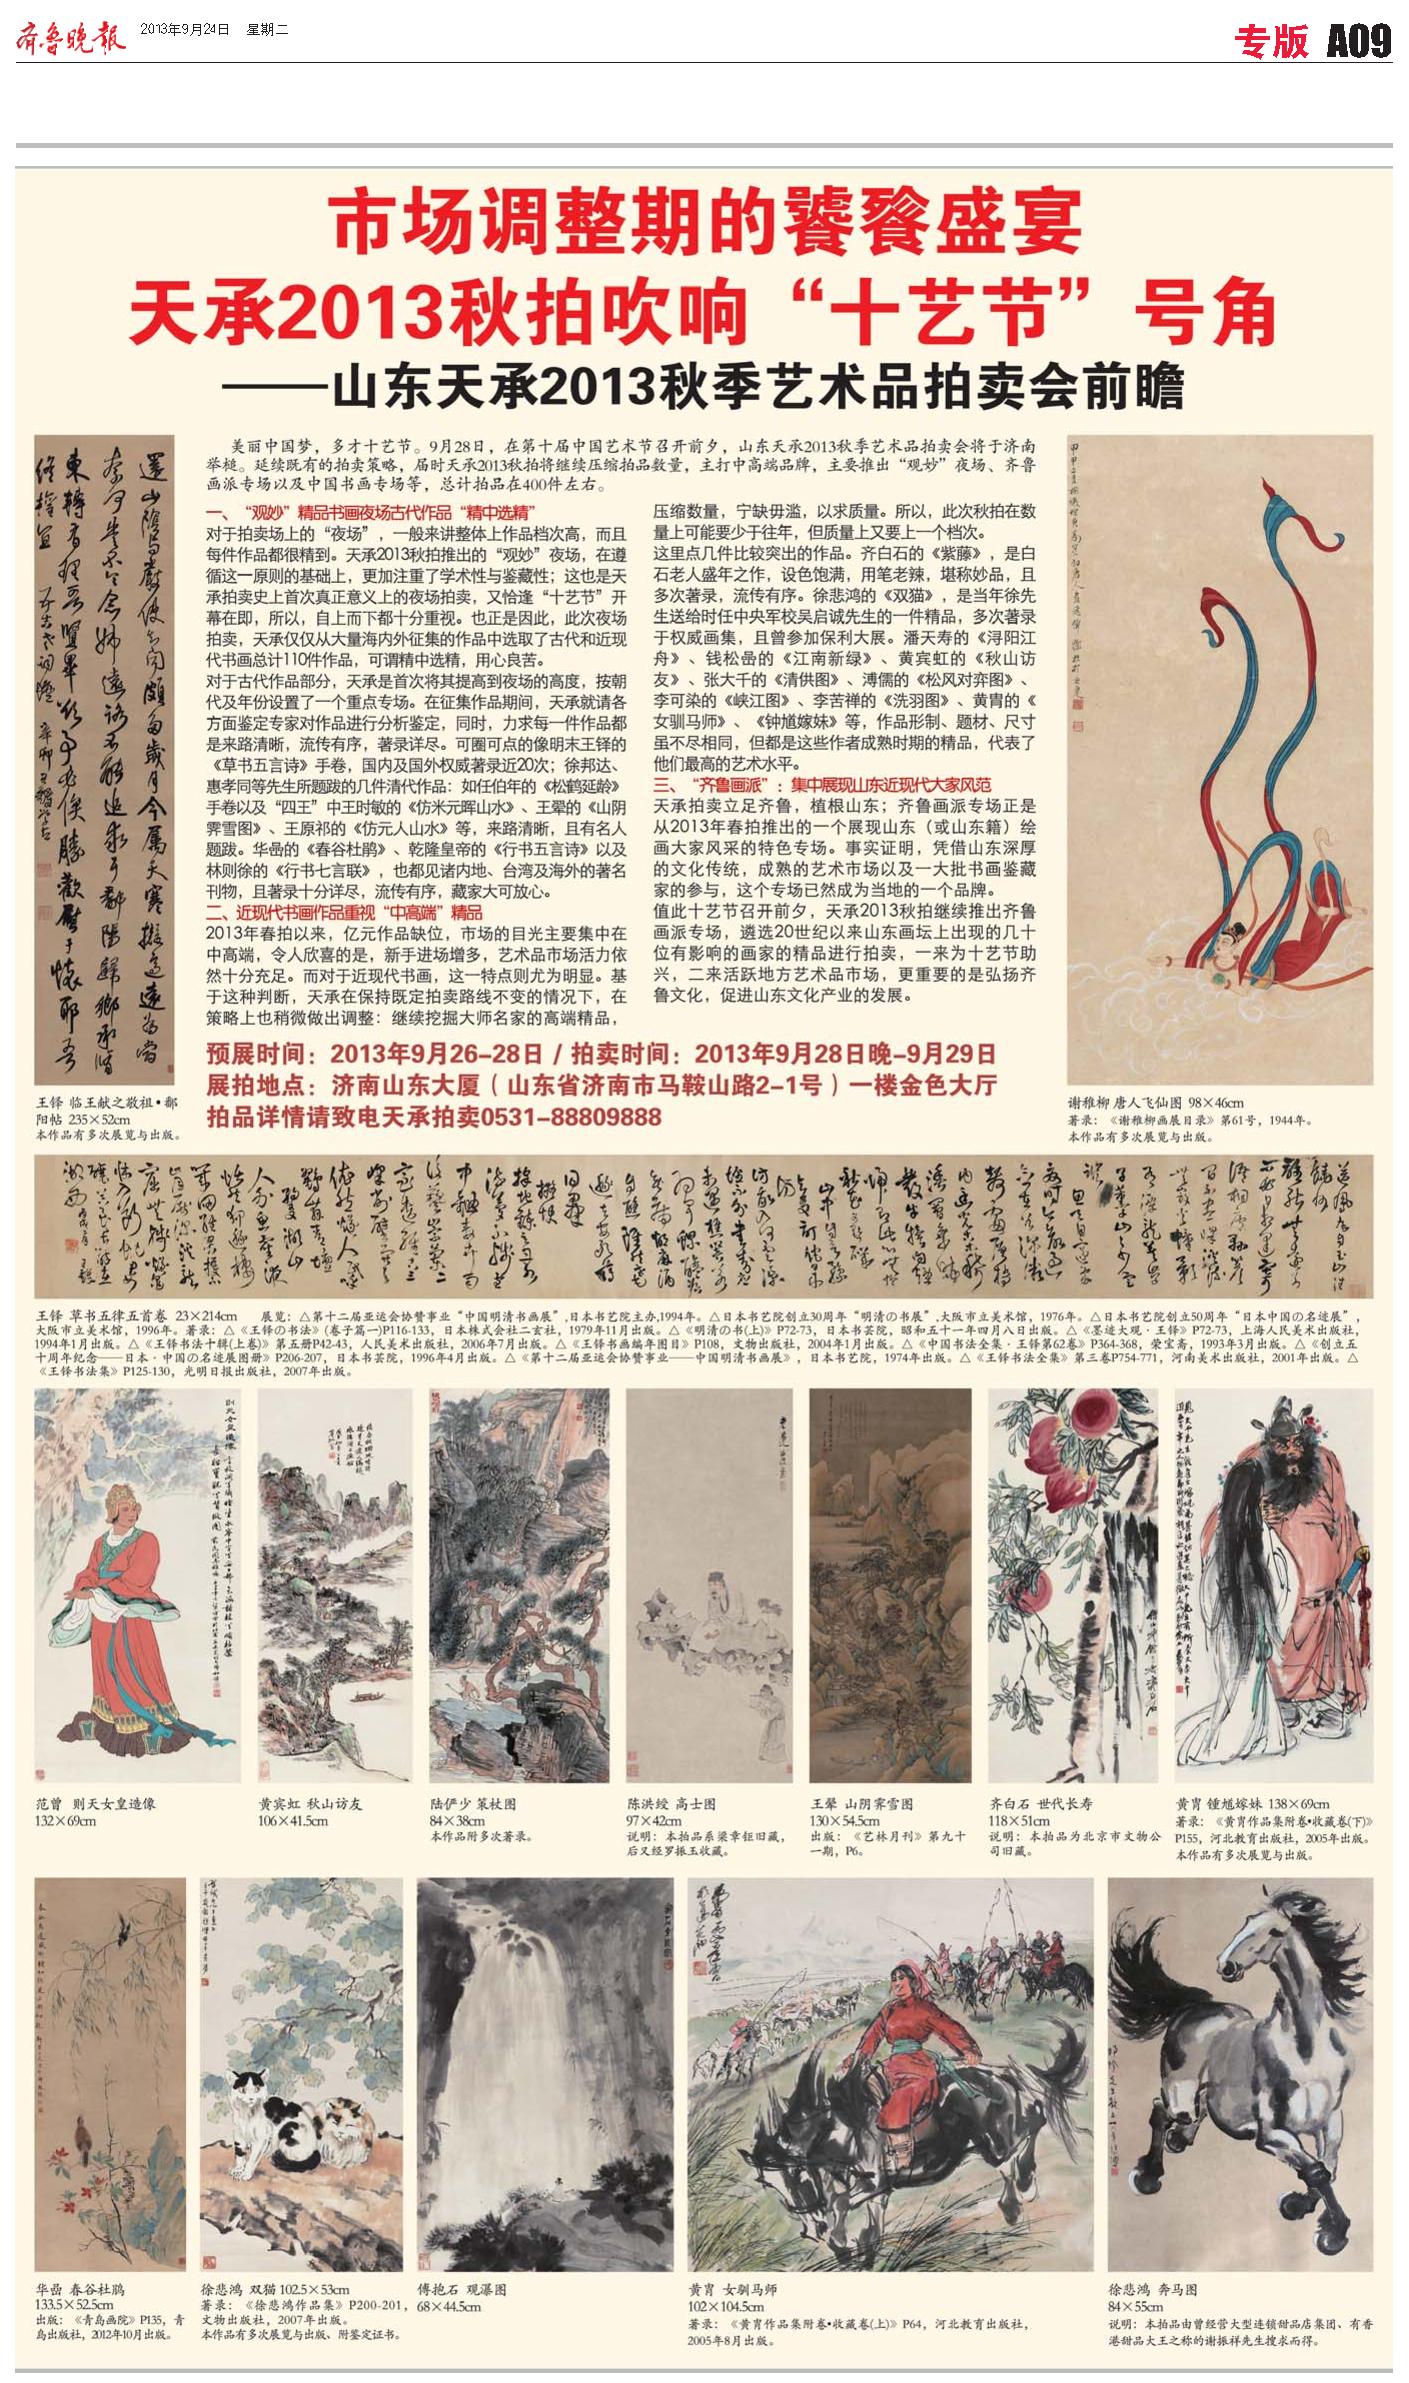 齐鲁晚报 2013年9月24日 星期二
专版 A09
市场调整期的饕餮盛宴
天承2013秋拍吹响“十艺节”号角
——山东天承2013秋季艺术品拍卖会前瞻
美丽中国梦，多才十艺节。9月28日，在第十届中国艺术节召开前夕，山东天承2013秋季艺术品拍卖会将于济南
举槌。延续既有的拍卖策略，届时天承2013秋拍将继续压缩拍品数量，主打中高端品牌，主要推出“观妙”夜场、齐鲁
画派专场以及中国书画专场等，总计拍品在400件左右。
一、“观妙”精品书画夜场古代作品“精中选精”
对于拍卖场上的“夜场”，一般来讲整体上作品档次高，而且
每件作品都很精到。天承2013秋拍推出的“观妙”夜场，在遵
循这一原则的基础上，更加注重了学术性与鉴藏性；这也是天
承拍卖史上首次真正意义上的夜场拍卖，又恰逢“十艺节”开
幕在即，所以，自上而下都十分重视。也正是因此，此次夜场
拍卖，天承仅仅从大量海内外征集的作品中选取了古代和近现
代书画总计110件作品，可谓精中选精，用心良苦。
对于古代作品部分，天承是首次将其提高到夜场的高度，按朝
代及年份设置了一个重点专场。在征集作品期间，天承就请各
方面鉴定专家对作品进行分析鉴定，同时，力求每一件作品都
是来路清晰，流传有序，著录详尽。可圈可点的像明末王铎的
《草书五言诗》手卷，国内及国外权威著录近20次；徐邦达、
惠孝同等先生所题跋的几件清代作品：如任伯年的《松鹤延龄》
手卷以及“四王”中王时敏的《仿米元晖山水》、王翚的《山阴
霁雪图》、王原祁的《仿元人山水》等，来路清晰，且有名人
题跋。华嵒的《春谷杜鹃》、乾隆皇帝的《行书五言诗》以及
林则徐的《行书七言联》，也都见诸内地、台湾及海外的著名
刊物，且著录十分详尽，流传有序，藏家大可放心。
二、近现代书画作品重视“中高端”精品
2013年春拍以来，亿元作品缺位，市场的目光主要集中在
中高端，令人欣喜的是，新手进场增多，艺术品市场活力依
然十分充足。而对于近现代书画，这一特点则尤为明显。基
于这种判断，天承在保持既定拍卖路线不变的情况下，在
策略上也稍微做出调整：继续挖掘大师名家的高端精品，
压缩数量，宁缺毋滥，以求质量。所以，此次秋拍在数
量上可能要少于往年，但质量上又要上一个档次。
这里点几件比较突出的作品。齐白石的《紫藤》，是白
石老人盛年之作，设色饱满，用笔老辣，堪称妙品，且
多次著录，流传有序。徐悲鸿的《双猫》，是当年徐先
生送给时任中央军校吴启诚先生的一件精品，多次著录
于权威画集，且曾参加保利大展。潘天寿的《浔阳江
舟》、钱松嵒的《江南新绿》、黄宾虹的《秋山访
友》、张大千的《清供图》、溥儒的《松风对弈图》、
李可染的《峡江图》、李苦禅的《洗羽图》、黄胄的《
女驯马师》、《钟馗嫁妹》等，作品形制、题材、尺寸
虽不尽相同，但都是这些作者成熟时期的精品，代表了
他们最高的艺术水平。
三、“齐鲁画派”：集中展现山东近现代大家风范
天承拍卖立足齐鲁，植根山东；齐鲁画派专场正是
从2013年春拍推出的一个展现山东（或山东籍）绘
画大家风采的特色专场。事实证明，凭借山东深厚
的文化传统，成熟的艺术市场以及一大批书画鉴藏
家的参与，这个专场已然成为当地的一个品牌。
值此十艺节召开前夕，天承2013秋拍继续推出齐鲁
画派专场，遴选20世纪以来山东画坛上出现的几十
位有影响的画家的精品进行拍卖，一来为十艺节助
兴，二来活跃地方艺术品市场，更重要的是弘扬齐
鲁文化，促进山东文化产业的发展。
预展时间：2013年9月26-28日 / 拍卖时间：2013年9月28日晚-9月29日
展拍地点：济南山东大厦（山东省济南市马鞍山路2-1号）一楼金色大厅
拍品详情请致电天承拍卖0531-88809888
王铎 临王献之敬祖·鄱
阳帖 235×52cm
本作品有多次展览与出版。
谢稚柳 唐人飞仙图 98×46cm
著录：《谢稚柳画展目录》第61号，1944年。
本作品有多次展览与出版。
王铎 草书五律五首卷 23×214cm 展览：△第十二届亚运会协赞事业“中国明清书画展”,日本书艺院主办,1994年。△日本书艺院创立30周年“明清の书展”,大阪市立美术馆，1976年。△日本书艺院创立50周年“日本中国の名迹展”，
大阪市立美术馆，1996年。著录：△《王铎の书法》(卷子篇一)P116-133，日本株式会社二玄社，1979年11月出版。△《明清の书(上)》P72-73，日本书芸院，昭和五十一年四月八日出版。△《墨迹大观·王铎》P72-73，上海人民美术出版社，
1994年1月出版。△《王铎书法十辑(上卷)》第五册P42-43，人民美术出版社，2006年7月出版。△《王铎书画编年图目》P108，文物出版社，2004年1月出版。△《中国书法全集·王铎第62卷》P364-368，荣宝斋，1993年3月出版。△《创立五
十周年纪念——日本·中国の名迹展图册》P206-207，日本书芸院，1996年4月出版。△《第十二届亚运会协赞事业——中国明清书画展》，日本书艺院，1974年出版。△《王铎书法全集》第三卷P754-771，河南美术出版社，2001年出版。△
《王铎书法集》P125-130，光明日报出版社，2007年出版。
范曾 则天女皇造像
132×69cm
黄宾虹 秋山访友
106×41.5cm
陆俨少 策杖图
84×38cm
本作品附多次著录。
陈洪绶 高士图
97×42cm
说明：本拍品系梁章钜旧藏，
后又经罗振玉收藏。
王翚 山阴霁雪图
130×54.5cm
出版：《艺林月刊》第九十
一期，P6。
齐白石 世代长寿
118×51cm
说明：本拍品为北京市文物公
司旧藏。
黄胄 锺馗嫁妹 138×69cm
著录：《黄胄作品集附卷•收藏卷(下)》
P155，河北教育出版社，2005年出版。
本作品有多次展览与出版。
华嵒 春谷杜鹃
133.5×52.5cm
出版：《青岛画院》P135，青
岛出版社，2012年10月出版。
徐悲鸿 双猫 102.5×53cm
著录：《徐悲鸿作品集》P200-201，
文物出版社，2007年出版。
本作品有多次展览与出版、附鉴定证书。
傅抱石 观瀑图
68×44.5cm
黄胄 女驯马师
102×104.5cm
著录：《黄胄作品集附卷•收藏卷(上)》P64，河北教育出版社，
2005年8月出版。
徐悲鸿 奔马图
84×55cm
说明：本拍品由曾经营大型连锁甜品店集团、有香
港甜品大王之称的谢振祥先生搜求而得。